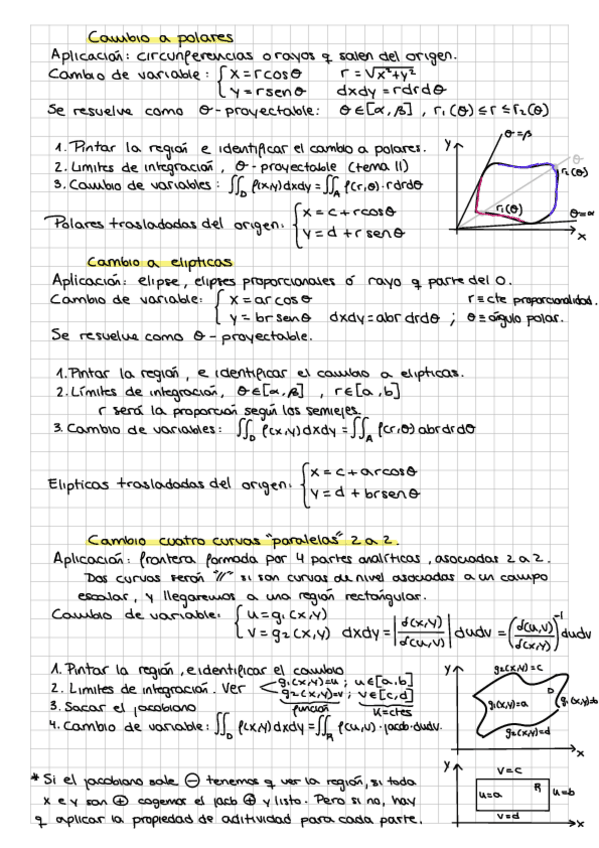 Cambio a polares
Aplicación: circunferencias o rayos q salen del origen.
Cambio de variable: { x = r cosθ   r = √x²+y²
y = r senθ   dxdy = rdrdθ
Se resuelve como θ-proyectable: θ∈[α,β], r₁(θ) ≤ r ≤ r₂(θ)
1. Pintar la región e identificar el cambio a polares.
2. Limites de integración, θ-proyectable (tema 11)
3. Cambio de variables: ∬_D f(x,y)dxdy = ∬_A f(r,θ)·rdrdθ
y
θ=β
θ
r₁(θ)
r₁(θ)
θ=α
x
Polares trasladadas del origen: { x = c + r cosθ
y = d + r senθ
Cambio a elipticas
Aplicación: elipse, elipses proporcionales ó rayo q parte del O.
Cambio de variable: { x = ar cosθ   r ≡ cte proporcionalidad.
y = br senθ   dxdy = abr drdθ ; θ ≡ ángulo polar.
Se resuelve como θ-proyectable.
1. Pintar la región, e identificar el cambio a elipticas.
2. Límites de integración, θ∈[α,β] , r∈[a,b]
r será la proporción según los semiejes.
3. Cambio de variables: ∬_D f(x,y)dxdy = ∬_A f(r,θ) abrdrdθ
Elipticas trasladadas del origen: { x = c + arcosθ
y = d + brsenθ
Cambio cuatro curvas "paralelas" 2 a 2.
Aplicación: frontera formada por 4 partes analíticas, asociadas 2 a 2.
Dos curvas serán "//" si son curvas de nivel asociadas a un campo
escalar, y llegaremos a una región rectangular.
Cambio de variable: { u = g₁(x,y)
v = g₂(x,y)   dxdy = |d(x,y)/d(u,v)| dudv = (d(u,v)/d(x,y))⁻¹ dudv
1. Pintar la región, e identificar el cambio
2. Limites de integración. Ver < g₁(x,y)=u ; u∈[a,b]
g₂(x,y)=v ; v∈[c,d]
función   u=ctes
3. Sacar el jacobiano
4. Cambio de variable: ∬_D f(x,y)dxdy = ∬_R f(u,v)·jacob·dudv.
y
g₂(x,y)=c
D
g₁(x,y)=a
g₁(x,y)=b
g₂(x,y)=d
x
* Si el jacobiano sale ⊖ tenemos q ver la región, si toda
x e y son ⊕ cogemos el jacb ⊕ y listo. Pero si no, hay
q aplicar la propiedad de aditividad para cada parte.
y
v=c
R
u=a
u=b
v=d
x